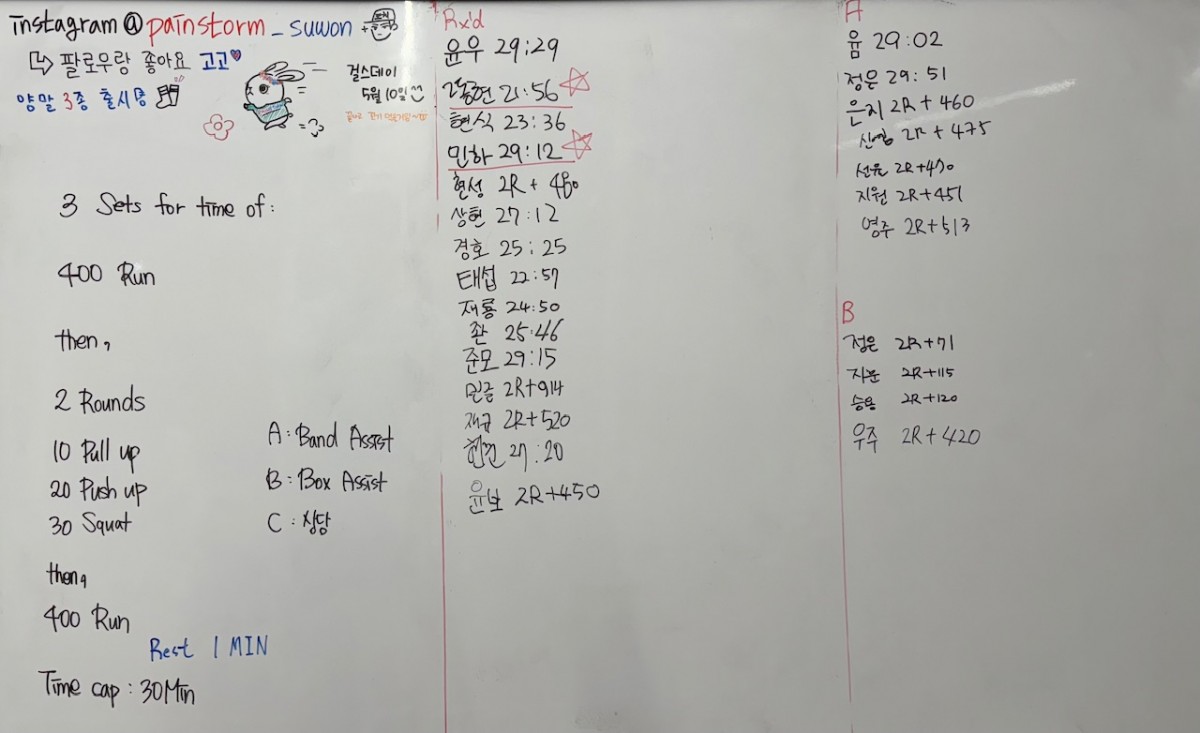 instagram@painstorm_suwon
팔로우랑 좋아요 고고
양말 3종 출시중
걸스데이
5월 10일
3 Sets for time of:
400 Run
then,
2 Rounds
10 Pull up
20 Push up
30 Squat
A: Band Assist
B: Box Assist
C: 상담
then,
400 Run
Rest 1 MIN
Time cap: 30Min
Rx'd
윤우 29:29
동현 21:56
현식 23:36
민하 29:12
현성 2R+480
상현 27:12
경호 25:25
태섭 22:57
재룡 24:50
좐 25:46
준모 29:15
2R+914
2R+520
27:20
윤보 2R+450
A
윰 29:02
정은 29:51
은지 2R+460
2R+475
선윤 2R+470
지원 2R+451
영주 2R+513
B
정은 2R+71
지문 2R+115
승용 2R+120
우주 2R+420